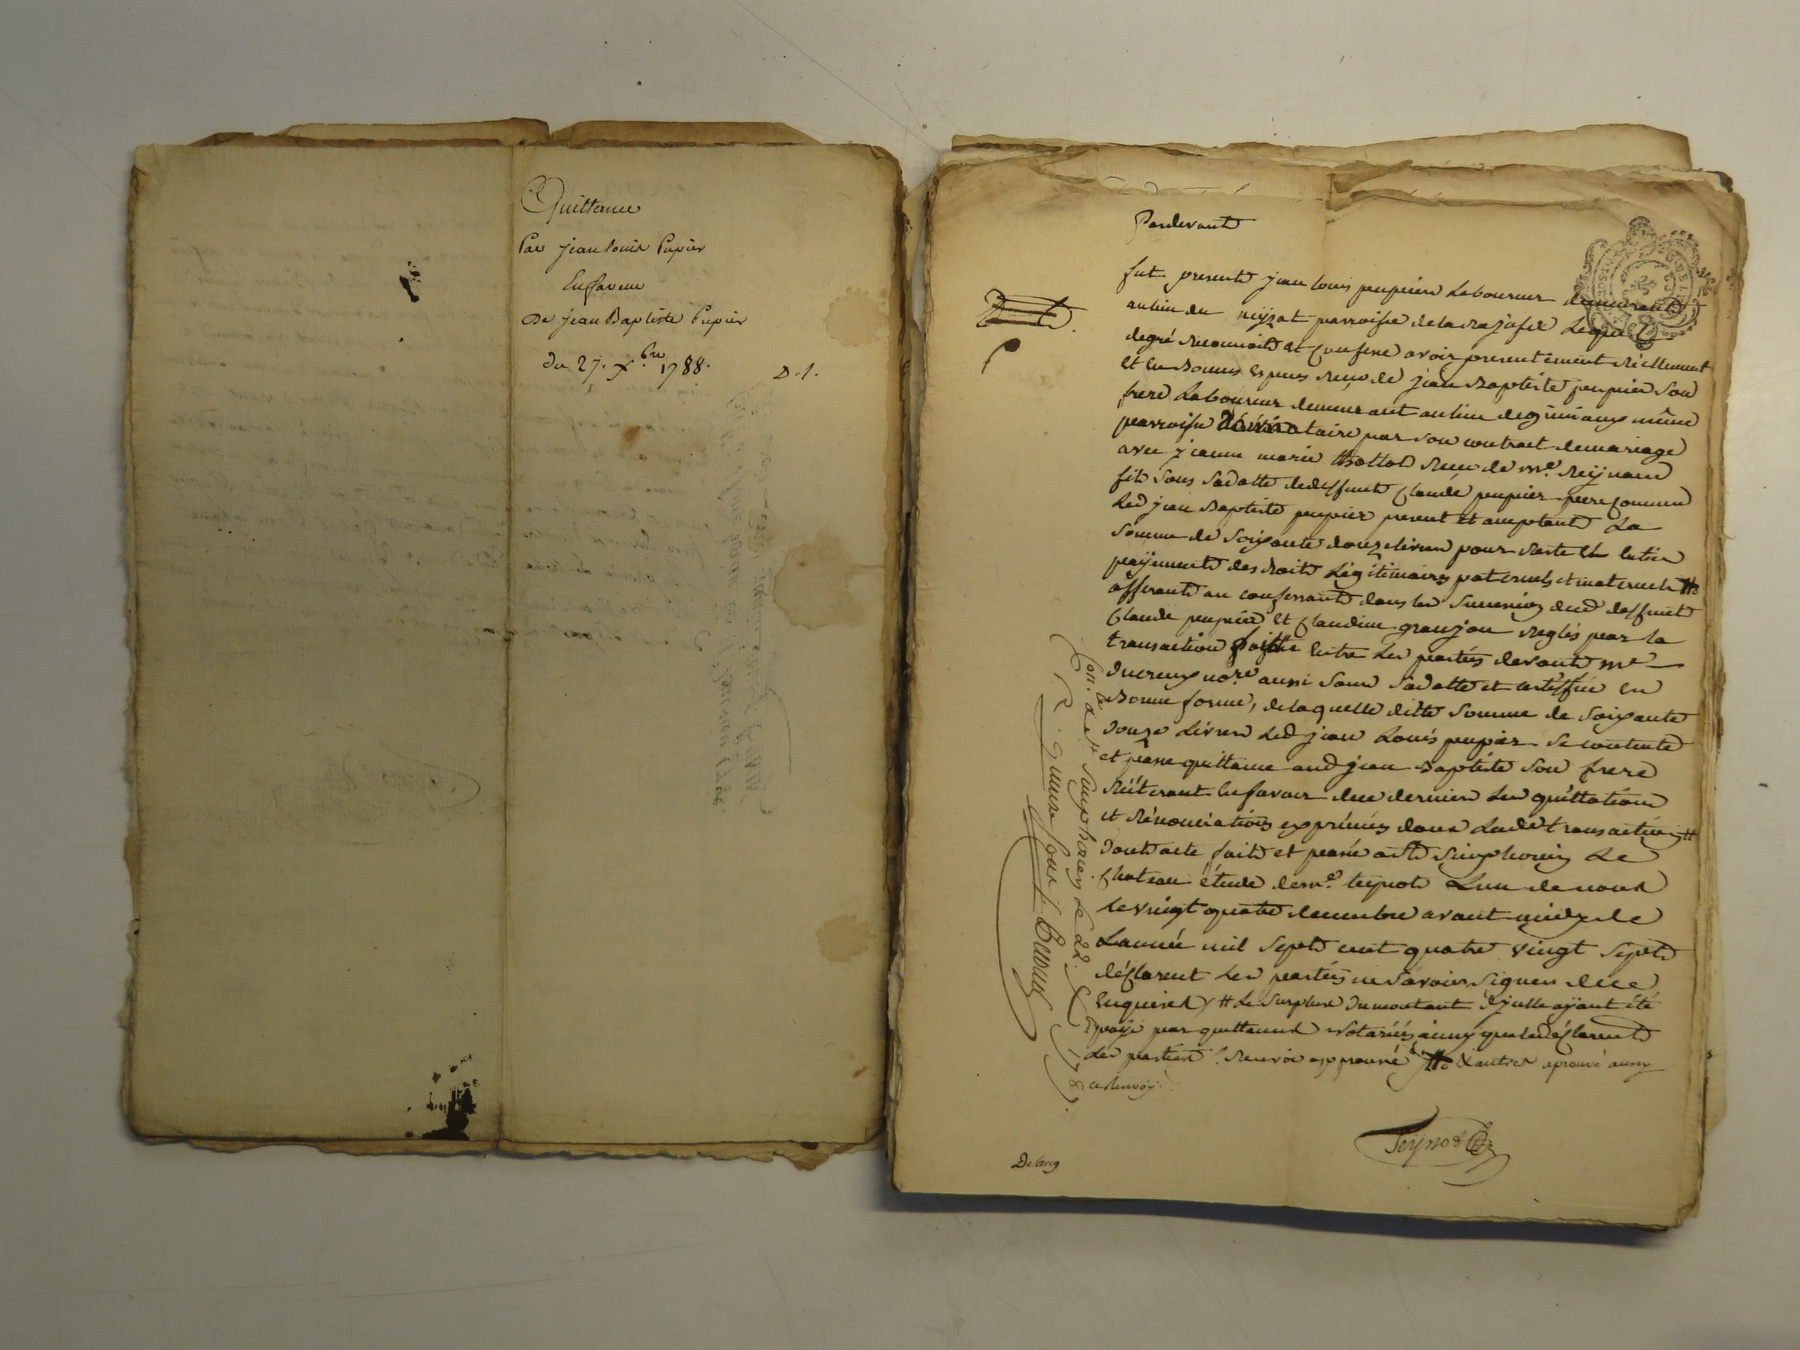 Quittance
Par jean louis Pupier
En faveur
De jean Baptiste Pupier
du 27. Xbre 1788.
D. 1.
Pardevant
fut present jean louis peupier laboureur demeurant
au lieu du parroisse de la lequel
degré reconnoit et confesse avoir presentement réellement
et en bonnes especes reçu de jean Baptiste peupier son
frere laboureur demeurant au lieu de même
parroisse par son contrat de mariage
avec jeanne marie thollot reçu de me. Reynaud
fils sous sa datte de deffunt Claude peupier pere comme
led jean Baptiste peupier present et acceptant la
somme de soixante douze livres pour reste et entier
payement des droits légitimaires paternels et maternels #
afferants au confessant dans les successions dud deffunt
Claude peupier et Claudine granjon reglés par la
transaction passée entre les parties devant me
ducreux nore. aussi sous sa datte et certiffié en
Bonne forme, de laquelle ditte somme de soixante
douze livres led jean Louis peupier se contente
et passe quittance aud jean Baptiste son frere
réiterant en faveur de ce dernier les quittations
et rénonciations exprimées dans lad transaction #
dont acte fait et passé a St Simphorien le
Chateau étude de me. teynot l'un de nous
le vingt quatre decembre avant midy de
L'année mil sept cent quatre vingt sept
déclarent les parties ne savoir signer de ce
enquises # le surplus du montant d'jcelle ayant été
payé par quittances notariées ainsy que le déclarent
les parties. renvoi approuvé # & autres aprouvé aussy
ce renvoy.
Con. a St Simphorien le 22. 178
R. quinze sous
Teynot